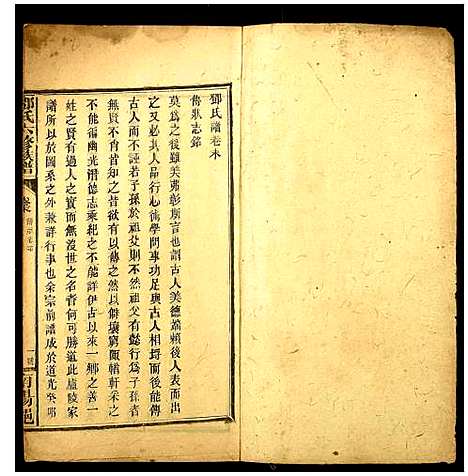 鄧氏譜卷末
傳狀志銘
莫為之後雖美弗彰所言也謂古人美德端賴後人表而出
之又必其人品行心術學問事功足與古人相埒而後能傳
古人而不誣若子孫於祖父則不然祖父有懿行為子孫者
無賢不肖皆得有以傳之然以僻壤窮陬輶軒采之
不能徧幽光潛德志乘紀之不能詳伊古以來一鄉之善一
姓之賢有過人之實而無沒世之名者何可勝道此廬陵家
譜所以於圖系之外兼詳行事也余宗前譜成於道光癸
鄧氏六修族譜
卷末
南陽